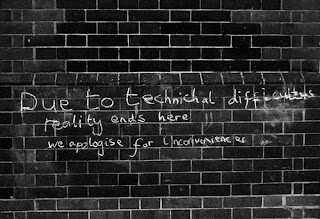 Due to technichal difficulties
reality ends here
we apologise for Inconveniences